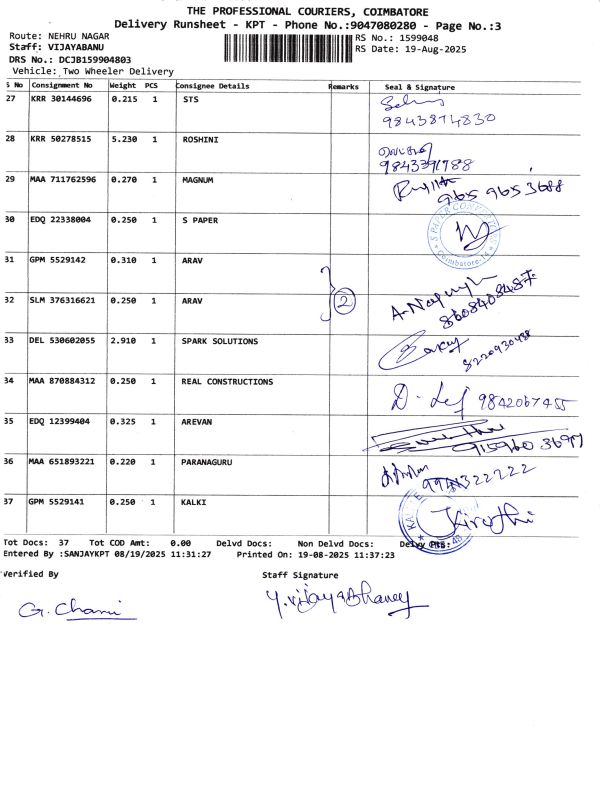 THE PROFESSIONAL COURIERS, COIMBATORE
Delivery Runsheet - KPT - Phone No.:9047080280 - Page No.:3
Route: NEHRU NAGAR RS No.: 1599048
Staff: VIJAYABANU RS Date: 19-Aug-2025
DRS No.: DCJB159904803
Vehicle: Two Wheeler Delivery
S No Consignment No Weight PCS Consignee Details Remarks Seal & Signature
27 KRR 30144696 0.215 1 STS
9843874830
28 KRR 50278515 5.230 1 ROSHINI
9843391788
29 MAA 711762596 0.270 1 MAGNUM
965 965 3688
30 EDQ 22338004 0.250 1 S PAPER
S PAPER
Coimbatore-14
31 GPM 5529142 0.310 1 ARAV
32 SLM 376316621 0.250 1 ARAV 2
8608408487
33 DEL 530602055 2.910 1 SPARK SOLUTIONS
8220930488
34 MAA 870884312 0.250 1 REAL CONSTRUCTIONS
9842067455
35 EDQ 12399404 0.325 1 AREVAN
915960 3697
36 MAA 651893221 0.220 1 PARANAGURU
37 GPM 5529141 0.250 1 KALKI
Kiruthi
Tot Docs: 37 Tot COD Amt: 0.00 Delvd Docs: Non Delvd Docs: Delvy
Entered By :SANJAYKPT 08/19/2025 11:31:27 Printed On: 19-08-2025 11:37:23
Verified By Staff Signature
G. Chami